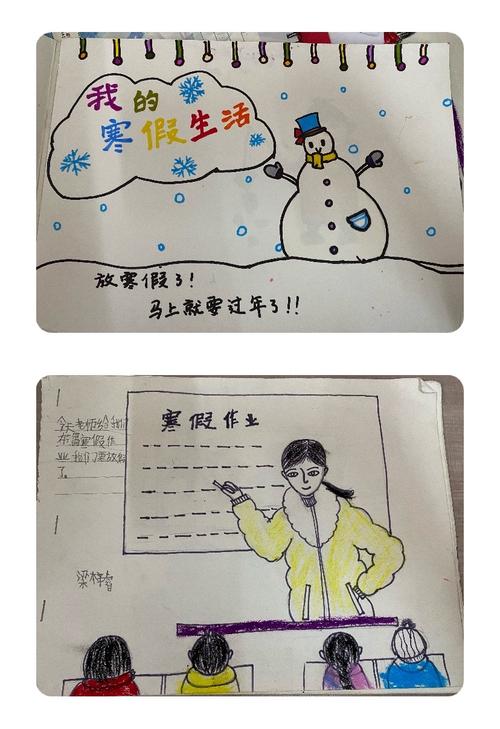 我的
寒假生活
放寒假了！
马上就要过年了！！
寒假作业
今天老师给我们
布置寒假作
业我们要放假
了。
梁梓睿